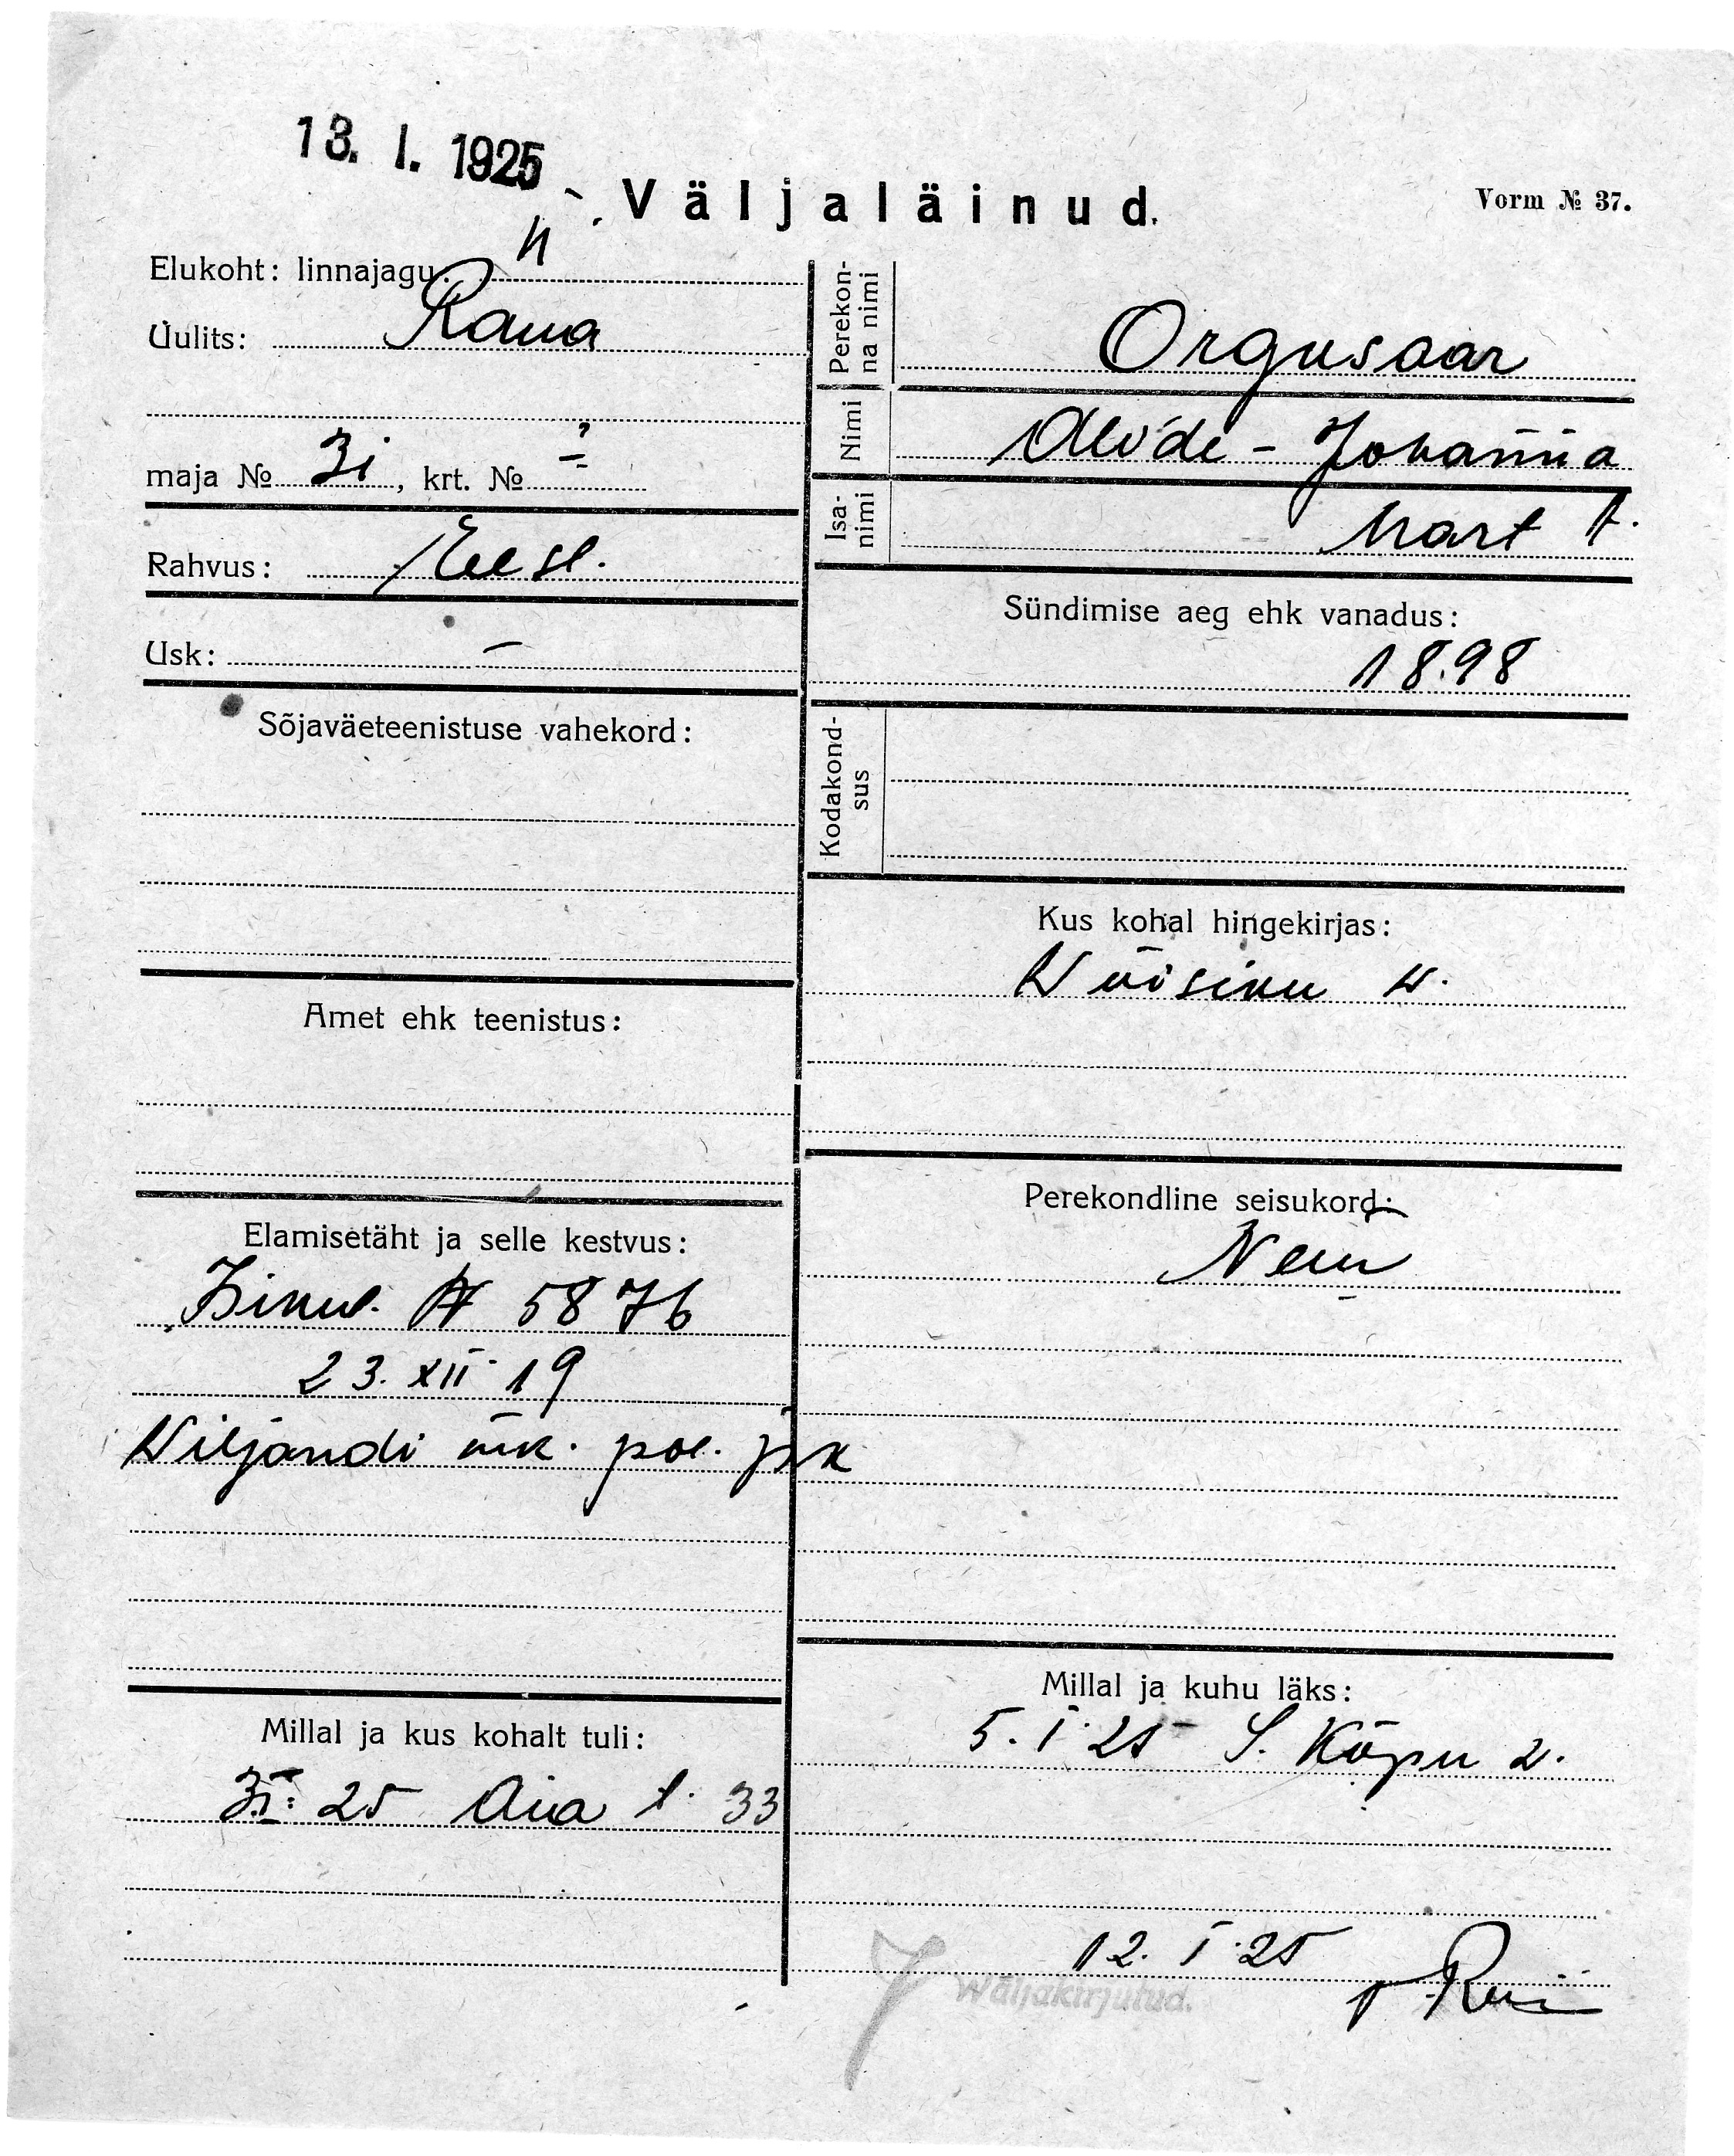 13. I. 1925
Väljaläinud.
Vorm № 37.
Elukoht: linnajagu: II
Üulits: Raua
maja № 31, krt. №
Rahvus: Eesl.
Usk: –
Sõjaväeteenistuse vahekord:
Amet ehk teenistus:
Elamisetäht ja selle kestvus:
Isikut. № 5876
23. XII 19
Wiljandi mk. pol. jsk
Millal ja kus kohalt tuli:
25 Aia t. 33
Perekonna nimi
Orgusaar
Nimi
Alvide-Johanna
Isanimi
Mart t.
Sündimise aeg ehk vanadus:
1898
Kodakondsus
Kus kohal hingekirjas:
Wõisiku w.
Perekondline seisukord:
Millal ja kuhu läks:
5. I 25 S. Kõpu v.
12. I 25
7 Wäljakirjutud.